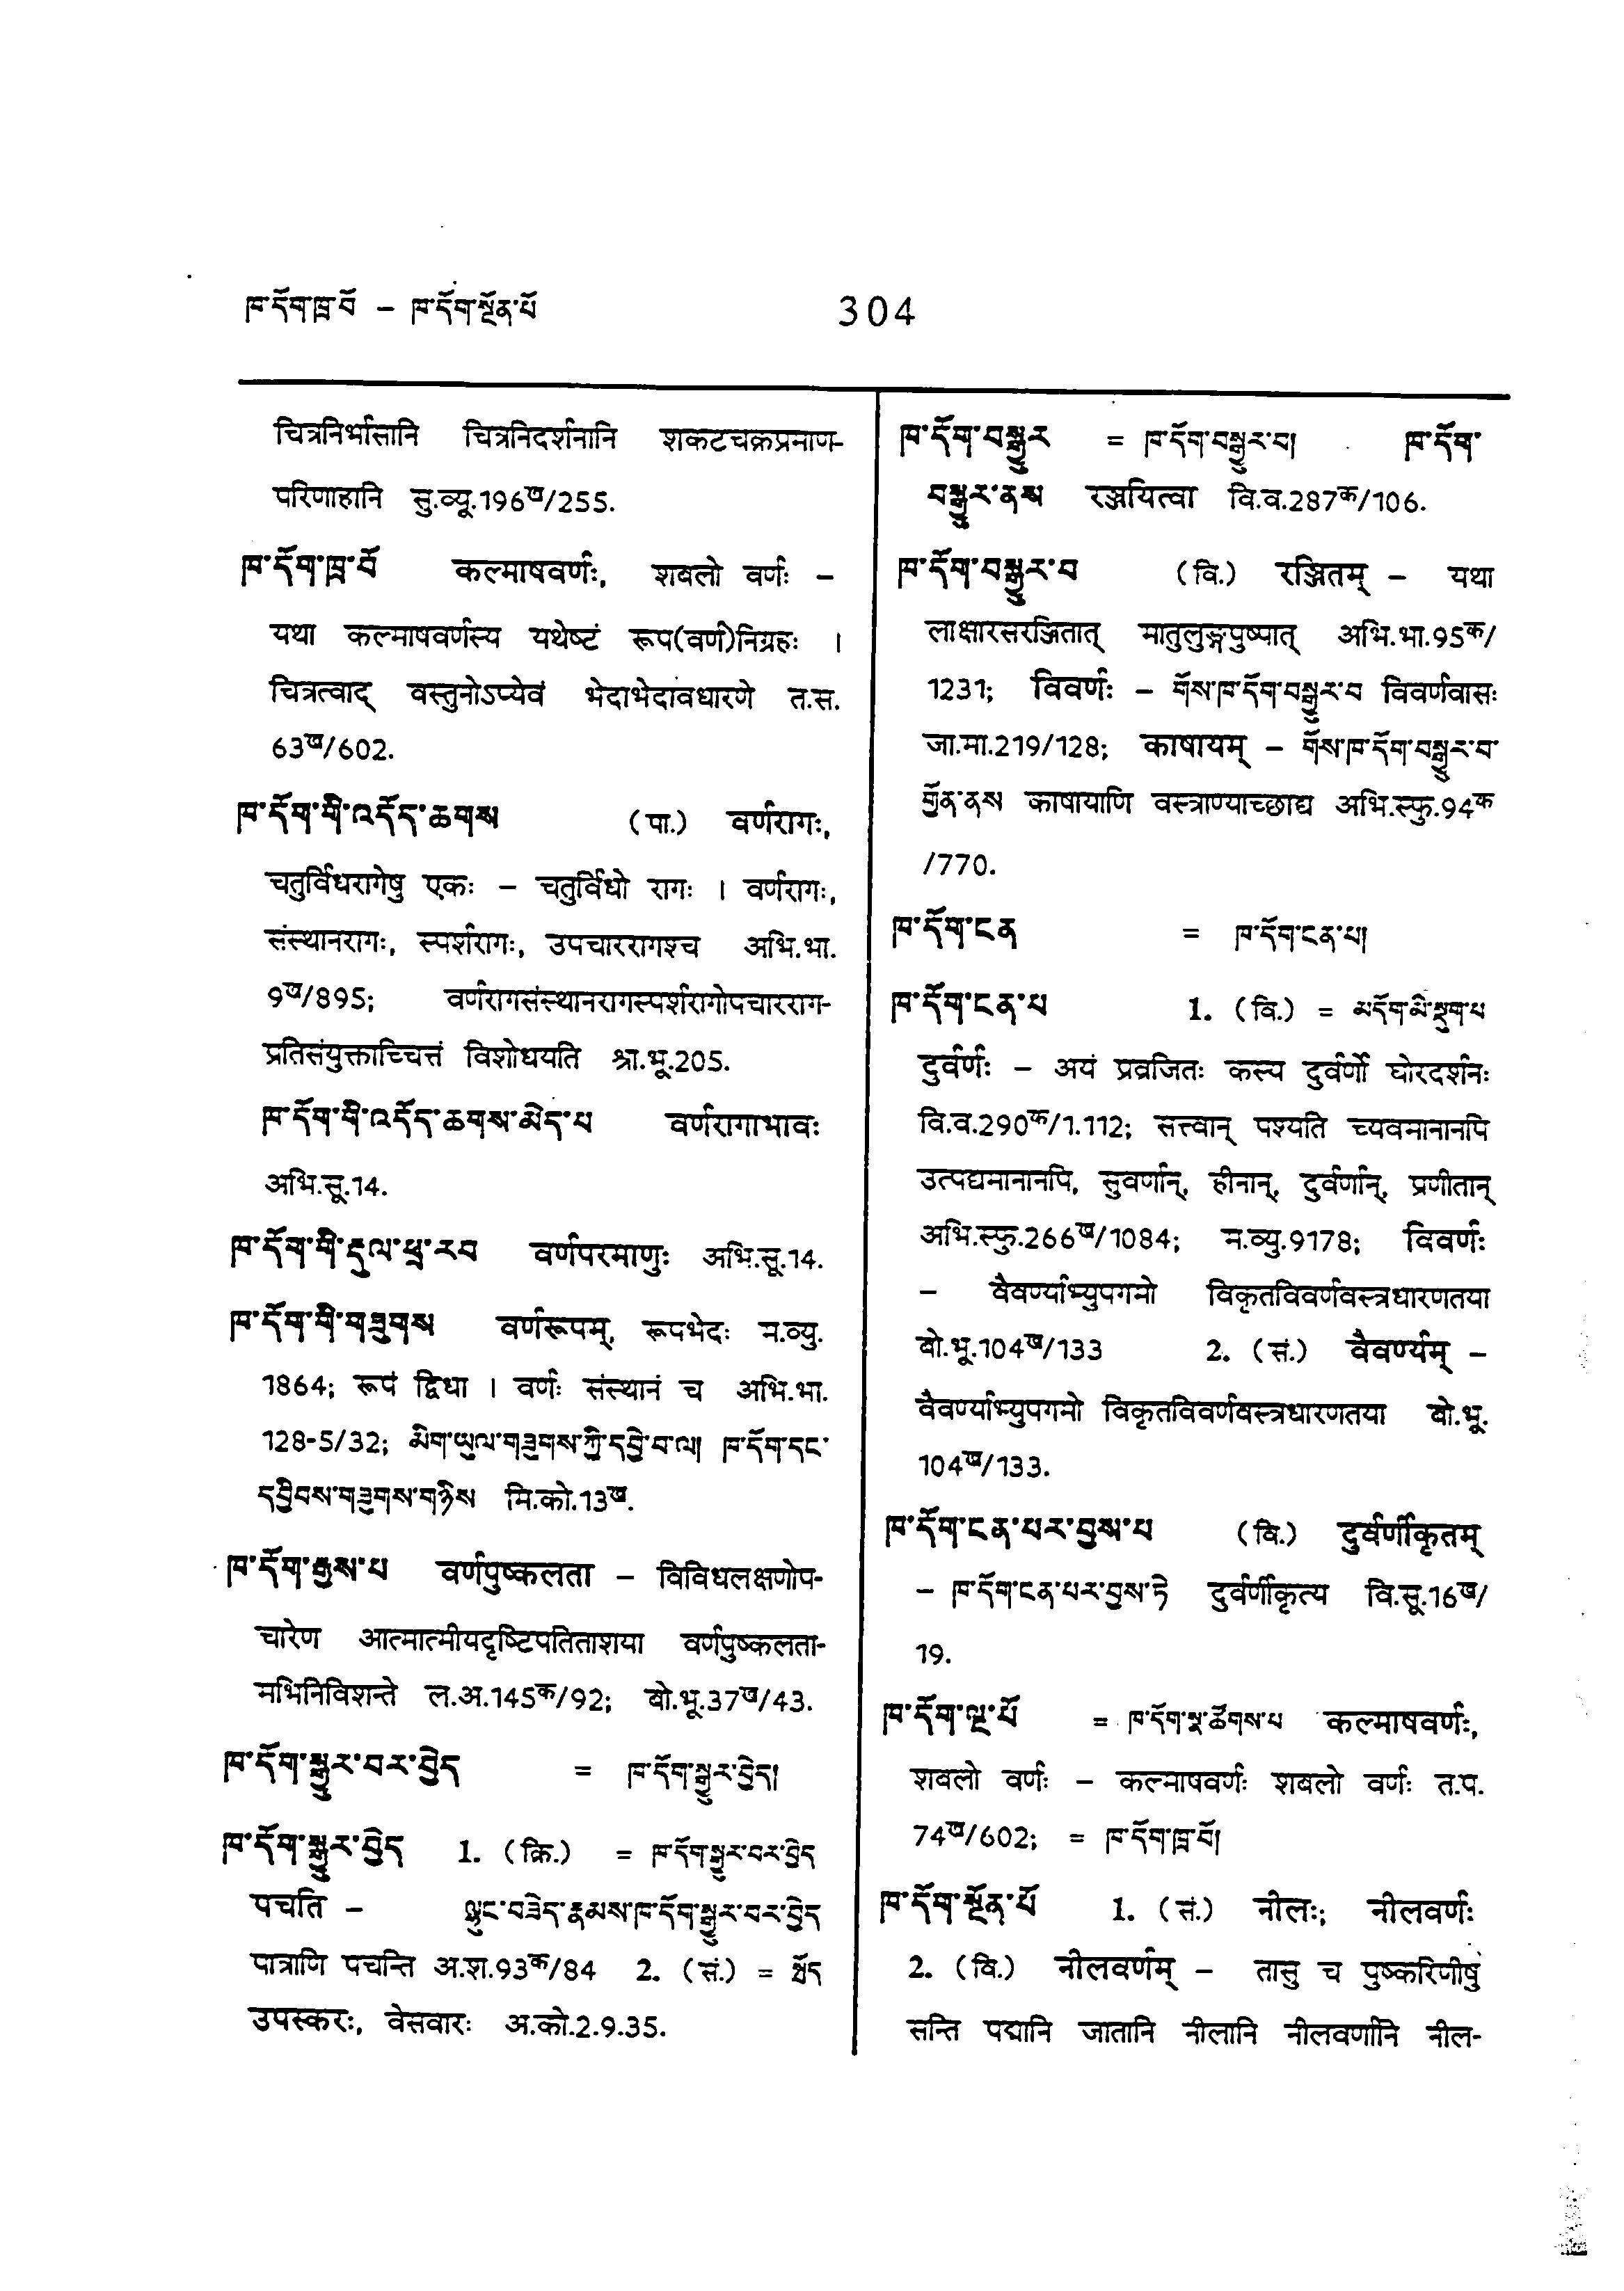 ཁ་དོག་ཁྲ་བོ – ཁ་དོག་སྔོན་པོ 304
चित्रनिर्भासानि चित्रनिदर्शनानि शकटचक्रप्रमाण-
परिणाहानि सु.व्यू.196ख/255.
ཁ་དོག་ཁྲ་བོ कल्माषवर्णः, शबलो वर्णः –
यथा कल्माषवर्णस्य यथेष्टं रूप(वर्ण)निग्रहः ।
चित्रत्वाद् वस्तुनोऽप्येवं भेदाभेदावधारणे त.स.
63ख/602.
ཁ་དོག་གི་འདོད་ཆགས (पा.) वर्णरागः,
चतुर्विधरागेषु एकः – चतुर्विधो रागः । वर्णरागः,
संस्थानरागः, स्पर्शरागः, उपचाररागश्च अभि.भा.
9ख/895; वर्णरागसंस्थानरागस्पर्शरागोपचारराग-
प्रतिसंयुक्ताच्चित्तं विशोधयति श्रा.भू.205.
ཁ་དོག་གི་འདོད་ཆགས་མེད་པ वर्णरागाभावः
अभि.सू.14.
ཁ་དོག་གི་རྡུལ་ཕྲ་རབ वर्णपरमाणुः अभि.सू.14.
ཁ་དོག་གི་གཟུགས वर्णरूपम्, रूपभेदः म.व्यु.
1864; रूपं द्विधा । वर्णः संस्थानं च अभि.भा.
128-5/32; མིག་ཡུལ་གཟུགས་ཀྱི་དབྱེ་བ་ལ། ཁ་དོག་དང་
དབྱིབས་གཟུགས་གཉིས मि.को.13ख.
ཁ་དོག་རྒྱས་པ वर्णपुष्कलता – विविधलक्षणोप-
चारेण आत्मात्मीयदृष्टिपतिताशया वर्णपुष्कलता-
मभिनिविशन्ते ल.अ.145क/92; बो.भू.37ख/43.
ཁ་དོག་སྒྱུར་བར་བྱེད = ཁ་དོག་སྒྱུར་བྱེད།
ཁ་དོག་སྒྱུར་བྱེད 1. (क्रि.) = ཁ་དོག་སྒྱུར་བར་བྱེད
पचति – ལྷུང་བཟེད་རྣམས་ཁ་དོག་སྒྱུར་བར་བྱེད
पात्राणि पचन्ति अ.श.93क/84 2. (सं.) = ཚོད
उपस्करः, वेसवारः अ.को.2.9.35.
ཁ་དོག་བསྒྱུར = ཁ་དོག་བསྒྱུར་བ། ཁ་དོག་
བསྒྱུར་ནས रञ्जयित्वा वि.व.287क/106.
ཁ་དོག་བསྒྱུར་བ (वि.) रञ्जितम् – यथा
लाक्षारसरञ्जितात् मातुलुङ्गपुष्पात् अभि.भा.95क/
1231; विवर्णः – གོས་ཁ་དོག་བསྒྱུར་བ विवर्णवासः
जा.मा.219/128; काषायम् – གོས་ཁ་དོག་བསྒྱུར་བ་
གྱོན་ནས काषायाणि वस्त्राण्याच्छाद्य अभि.स्फु.94क
/770.
ཁ་དོག་ངན = ཁ་དོག་ངན་པ།
ཁ་དོག་ངན་པ 1. (वि.) = མདོག་མི་སྡུག་པ
दुर्वर्णः – अयं प्रव्रजितः कस्य दुर्वर्णो घोरदर्शनः
वि.व.290क/1.112; सत्त्वान् पश्यति च्यवमानानपि
उत्पद्यमानानपि, सुवर्णान्, हीनान्, दुर्वर्णान्, प्रणीतान्
अभि.स्फु.266ख/1084; म.व्यु.9178; विवर्णः
– वैवर्ण्याभ्युपगमो विकृतविवर्णवस्त्रधारणतया
बो.भू.104ख/133 2. (सं.) वैवर्ण्यम् –
वैवर्ण्याभ्युपगमो विकृतविवर्णवस्त्रधारणतया बो.भू.
104ख/133.
ཁ་དོག་ངན་པར་བྱས་པ (वि.) दुर्वर्णीकृतम्
– ཁ་དོག་ངན་པར་བྱས་ཏེ दुर्वर्णीकृत्य वि.सू.16ख/
19.
ཁ་དོག་ལྔ་པོ = ཁ་དོག་སྣ་ཚོགས་པ कल्माषवर्णः,
शबलो वर्णः – कल्माषवर्णः शबलो वर्णः त.प.
74ख/602; = ཁ་དོག་ཁྲ་བོ།
ཁ་དོག་སྔོན་པོ 1. (सं.) नीलः; नीलवर्णः
2. (वि.) नीलवर्णम् – तासु च पुष्करिणीषु
सन्ति पद्मानि जातानि नीलानि नीलवर्णानि नील-